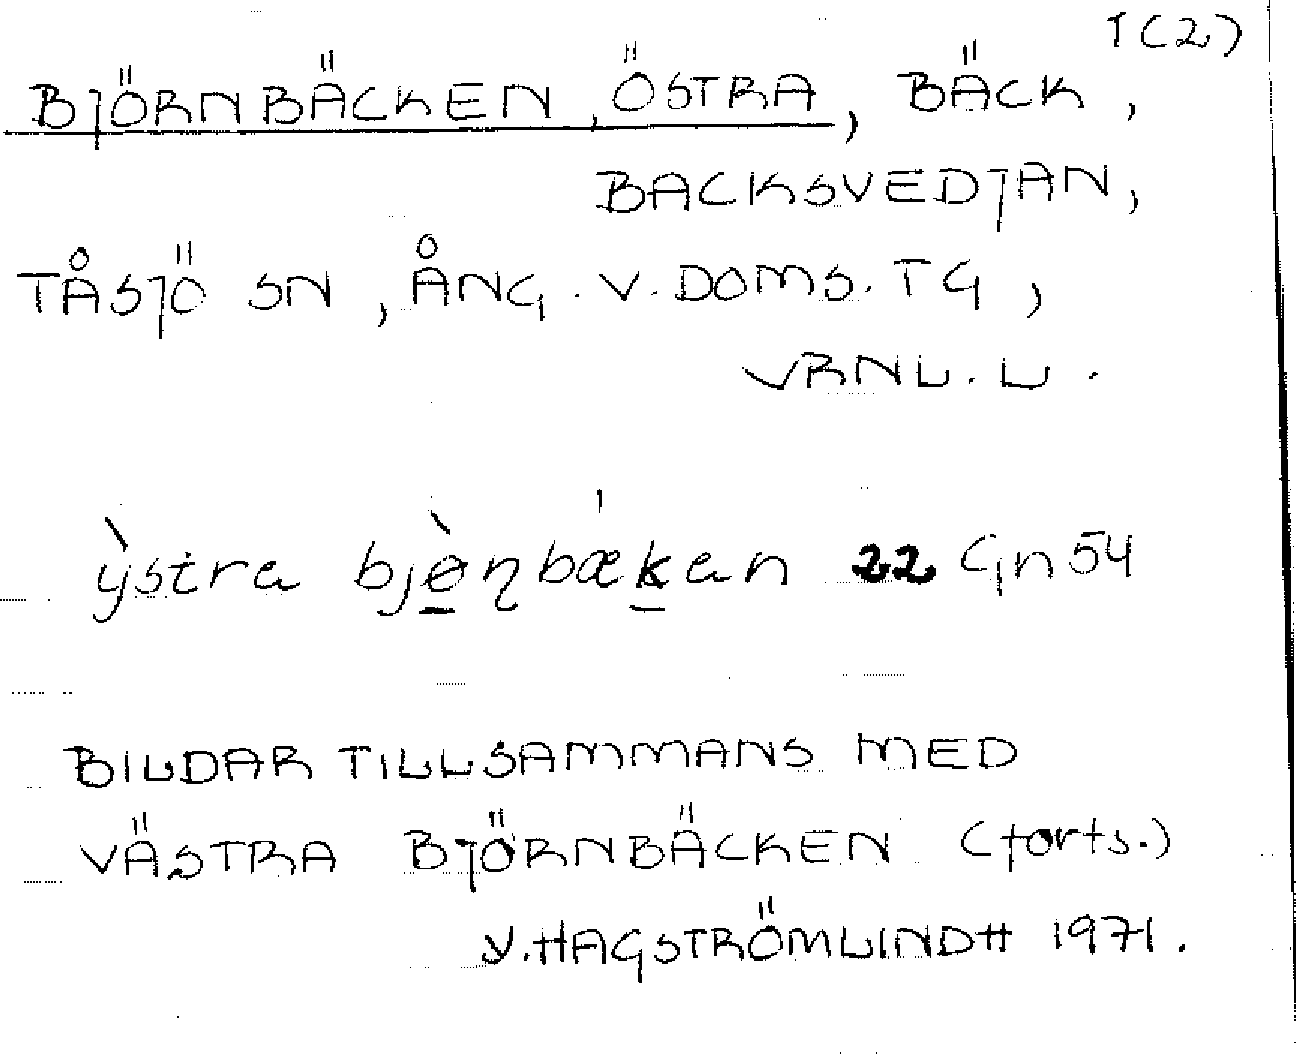 1(2)
BJÖRNBÄCKEN, ÖSTRA, BÄCK,
BACKSVEDJAN,
TÅSJÖ SN, ÅNG. V. DOMS. TG,
VRNL. L.
ỳstra bjèɳbækan 22 Gn 54
BILDAR TILLSAMMANS MED
VÄSTRA BJÖRNBÄCKEN (forts.)
V. HAGSTRÖMLINDH 1971.